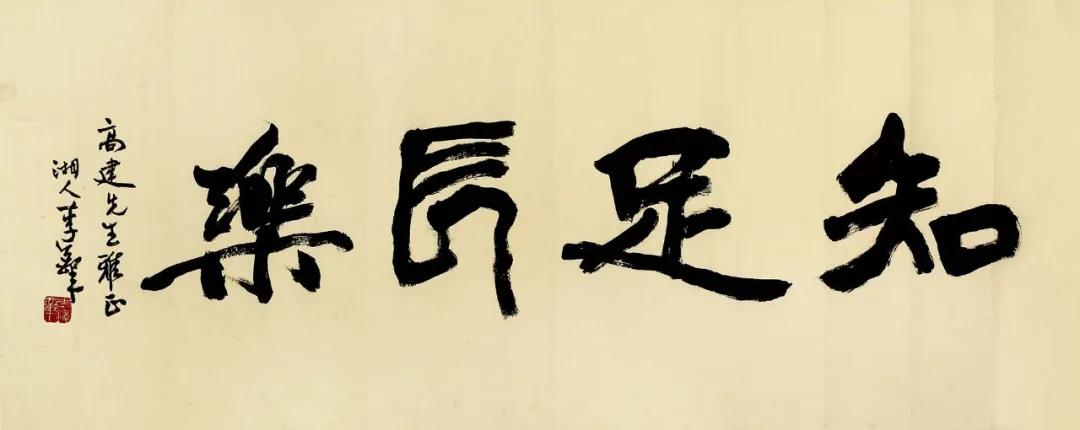 知足長樂
高建先生雅正
湘人李鐸